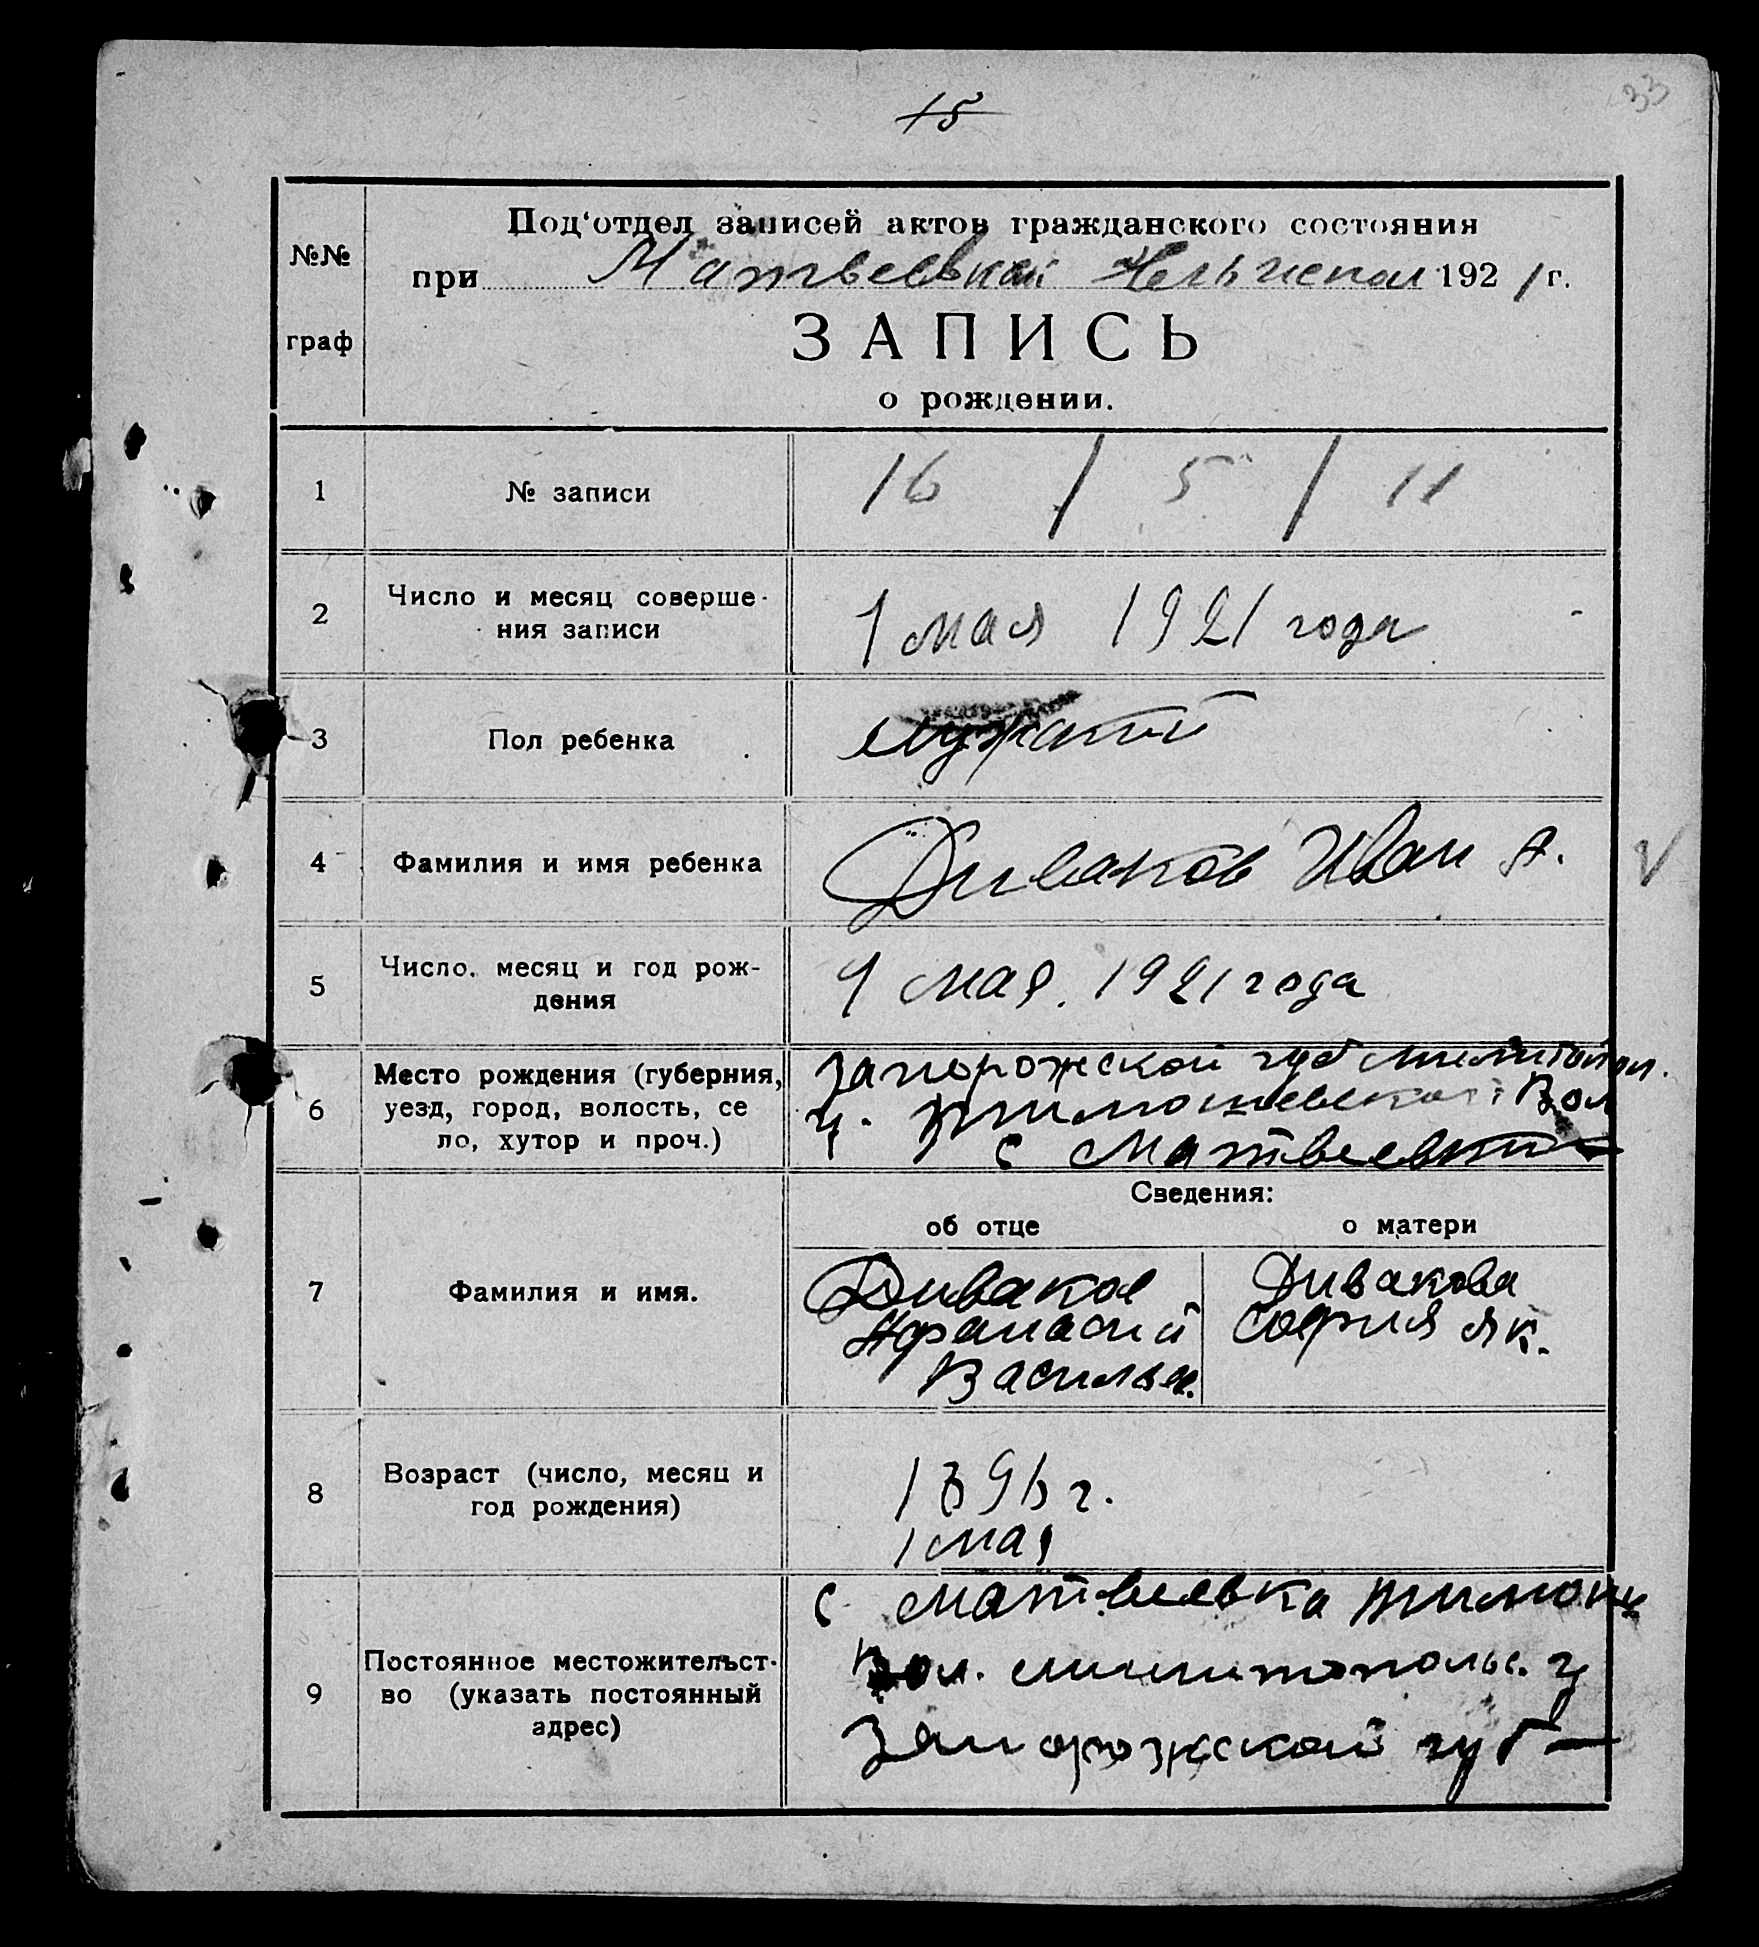 33
15
№№
граф
Под'отдел записей актов гражданского состояния
при Матвеевкой 1921 г.
ЗАПИСЬ
о рождении.
1 № записи 16 / 5 / 11
2 Число и месяц соверше-
ния записи
1 мая 1921 года
3 Пол ребенка
4 Фамилия и имя ребенка Диваков Иван А. V
5 Число, месяц и год рож-
дения
1 мая. 1921 года
6 Место рождения (губерния,
уезд, город, волость, се
ло, хутор и проч.)
Запорожской губ Мелитопол.
у. Тимошевской Вол
с Матвеевки
Сведения:
об отце о матери
7 Фамилия и имя.
Диваков
Афанасий
Васильев.
Дивакова
София Як.
8 Возраст (число, месяц и
год рождения)
1896 г.
1 мая
9 Постоянное местожительст-
во (указать постоянный
адрес)
с Матвеевка Тимош
Вол. Милитопольс. у
Запорожской губ